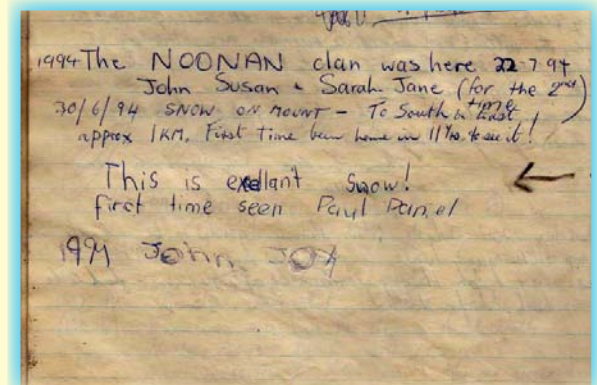 1994 The NOONAN clan was here 22-7-94
John Susan & Sarah Jane (for the 2nd time)
30/6/94 SNOW ON MOUNT - To South & East
approx 1KM. First Time been home in 11 Yrs. to see it!
This is exellant Snow!
first time seen Paul Daniel
1994 John JOY